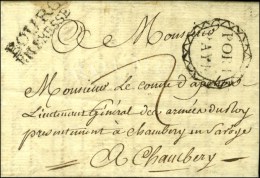 BOURG
EN BRESSE
A Monsieur
PORT
PAYÉ
Monsieur le comte d'apchon
Lieutenant Général des armées du Roy
presentement à Chambery en Savoye
A Chambery